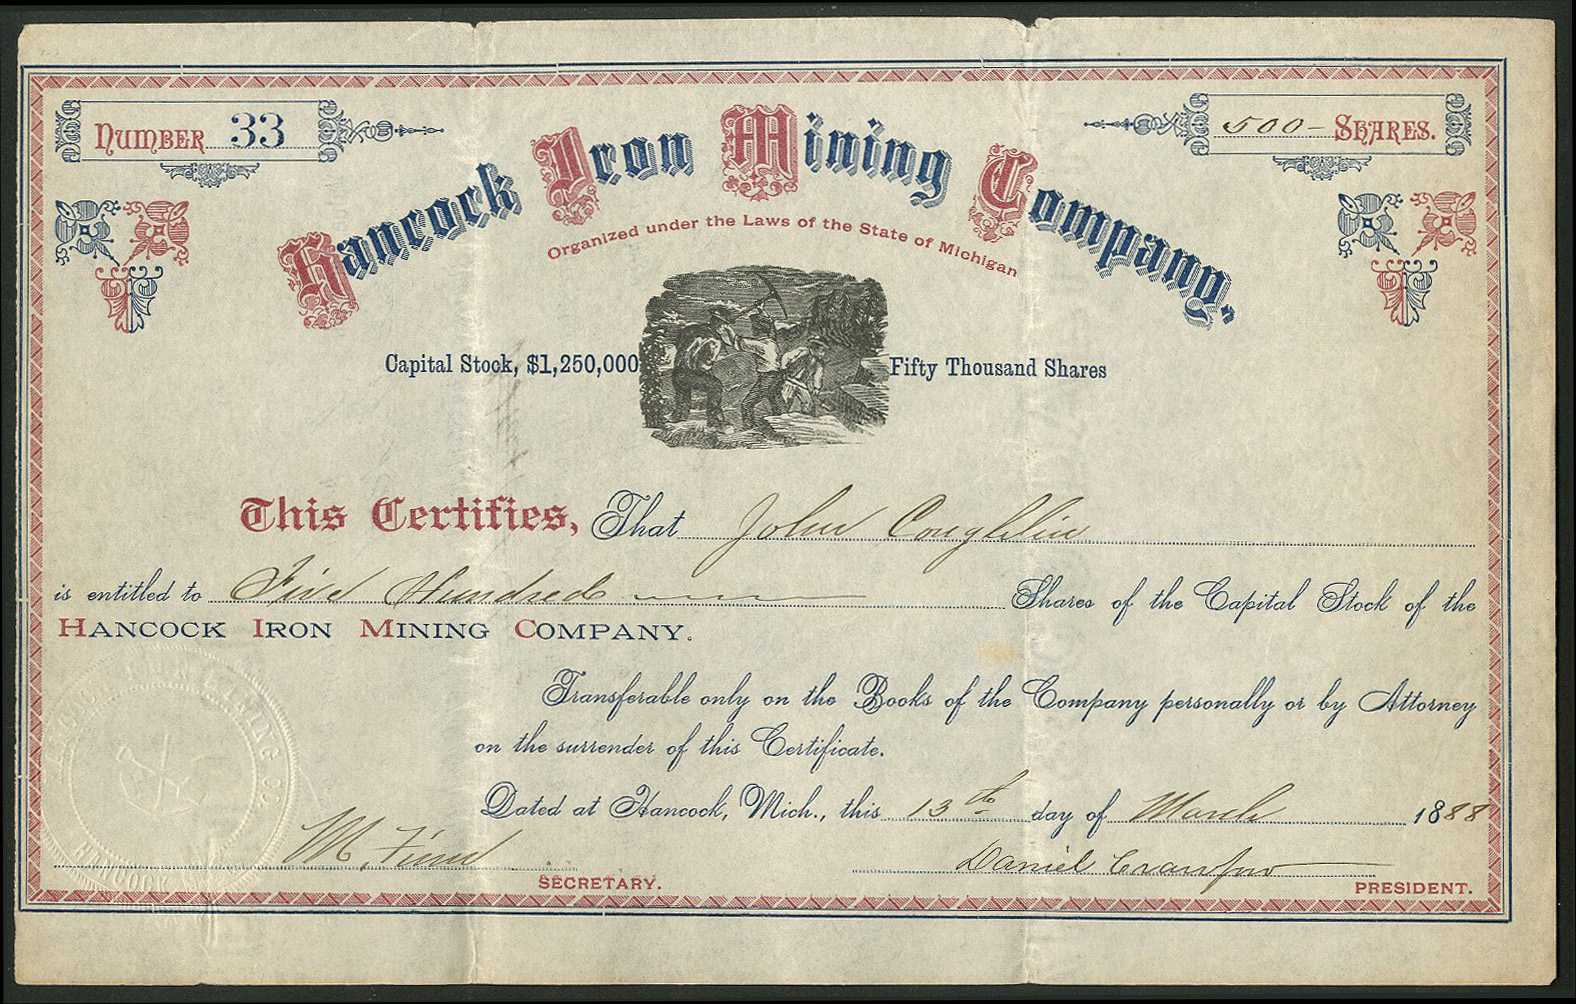 NUMBER 33
500- SHARES.
Hancock Iron Mining Company,
Organized under the Laws of the State of Michigan
Capital Stock, $1,250,000 Fifty Thousand Shares
This Certifies, That John Coughlin
is entitled to Five Hundred Shares of the Capital Stock of the
HANCOCK IRON MINING COMPANY.
Transferable only on the Books of the Company personally or by Attorney
on the surrender of this Certificate.
Dated at Hancock, Mich., this 13th day of March 1888
M. Finn
SECRETARY.
Daniel Crawford
PRESIDENT.